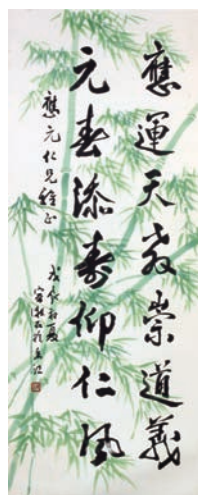 應運天教崇道義
元春添壽仰仁風
應元仁兄雅正
戊辰初夏